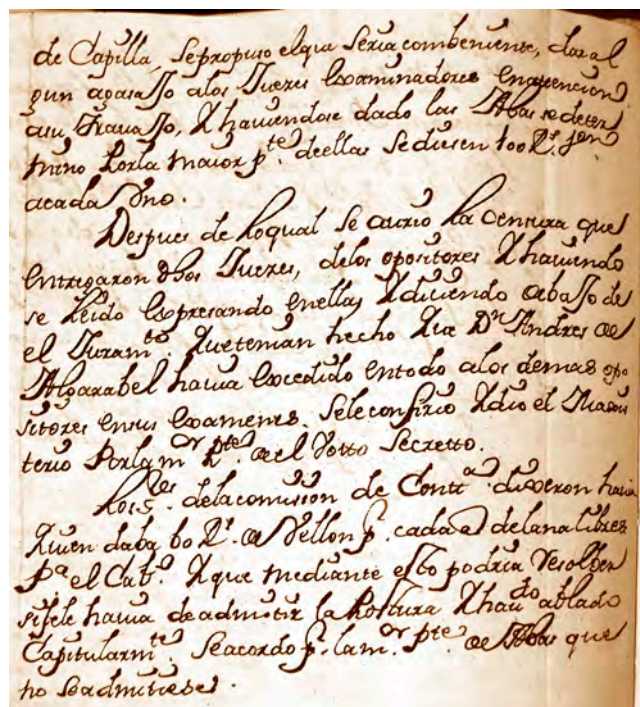 de Capilla, sepropuso elque seria combeniente, dar al
gun agasajo alos Juezes Examinadores enatencion
asu Travajo, Y haviendose dado las Abas sedeter
mino por la maior pte. deellas sediesen 100 Rs.
acada Vno.
Despues de loqual se avrio la Censura que
entregaron dhos Juezes, delos opositores Y haviendo
se leido Expresando enellas Y diciendo debajo de
el Juramto. que tenian hecho que Dn. Andres de
Algarabel havia Excedido entodo alos demas opo
sitores ensus Examenes. seleconfirio Y dio el Magis
terio Porlamor. pte. de el Votto Secretto.
Los Ses. delacomision de Contta. dixeron havia
quien daba 60 Rs. de Vellon pr. cada @ delana libres
pa. el Cabo. Y que mediante esto podria resolver
sisele havia deadmitir la Postura Y havdo. ablado
Capitularmte. seacordo pr. lamor. pte. de Abas que
no seadmitiese.